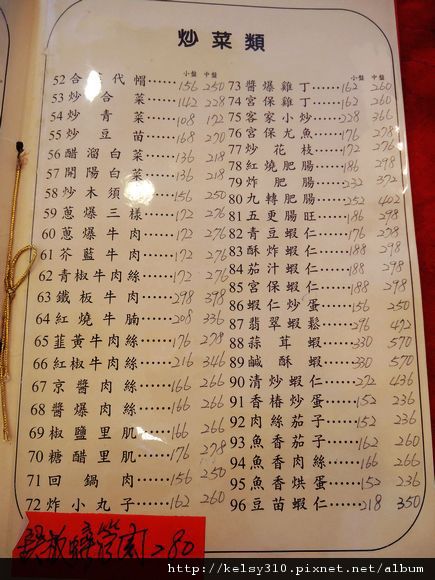 炒菜類
小盤 中盤
52 合菜代帽 156 250
53 炒合菜 142 228
54 炒青菜 108 172
55 炒豆苗 168 270
56 醋溜白菜 136 218
57 開陽白菜 136 218
58 炒木須 156 250
59 蔥爆三樣 172 276
60 蔥爆牛肉 172 276
61 芥藍牛肉 172 276
62 青椒牛肉絲 172 276
63 鐵板牛肉 298 398
64 紅燒牛腩 208 336
65 韮黃牛肉絲 176 278
66 紅椒牛肉絲 216 346
67 京醬肉絲 166 266
68 醬爆肉絲 166 266
69 椒鹽里肌 166 266
70 糖醋里肌 176 278
71 回鍋肉 156 250
72 炸小丸子 162 260
小盤 中盤
73 醬爆雞丁 162 260
74 宮保雞丁 162 260
75 客家小炒 228 366
76 宮保尤魚 176 278
77 炒花枝 172 276
78 紅燒肥腸 186 298
79 炸肥腸 232 372
80 九轉肥腸 252 402
81 五更腸旺 186 298
82 青豆蝦仁 176 278
83 酥炸蝦仁 188 298
84 茄汁蝦仁 188 298
85 宮保蝦仁 188 298
86 蝦仁炒蛋 156 250
87 翡翠蝦鬆 296 472
88 蒜茸蝦 330 570
89 鹹酥蝦 330 570
90 清炒蝦仁 272 436
91 香椿炒蛋 152 236
92 肉絲茄子 152 236
93 魚香茄子 162 260
94 魚香肉絲 166 266
95 魚香烘蛋 152 236
96 豆苗蝦仁 218 350
280
http://kelsy310.pixnet.net/album